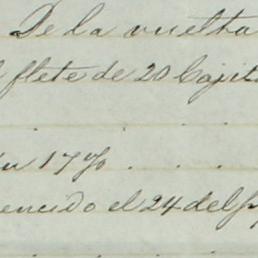 De la vuelta
flete de 20 Cajit
17%
encido el 24 del